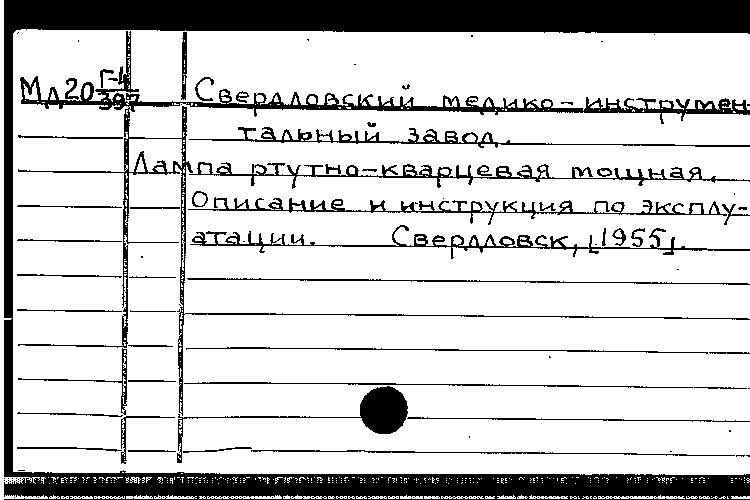 Мд20 Г-4/397 Свердловский медико-инструмен-
тальный завод.
Лампа ртутно-кварцевая мощная.
Описание и инструкция по эксплу-
атации. Свердловск, [1955].